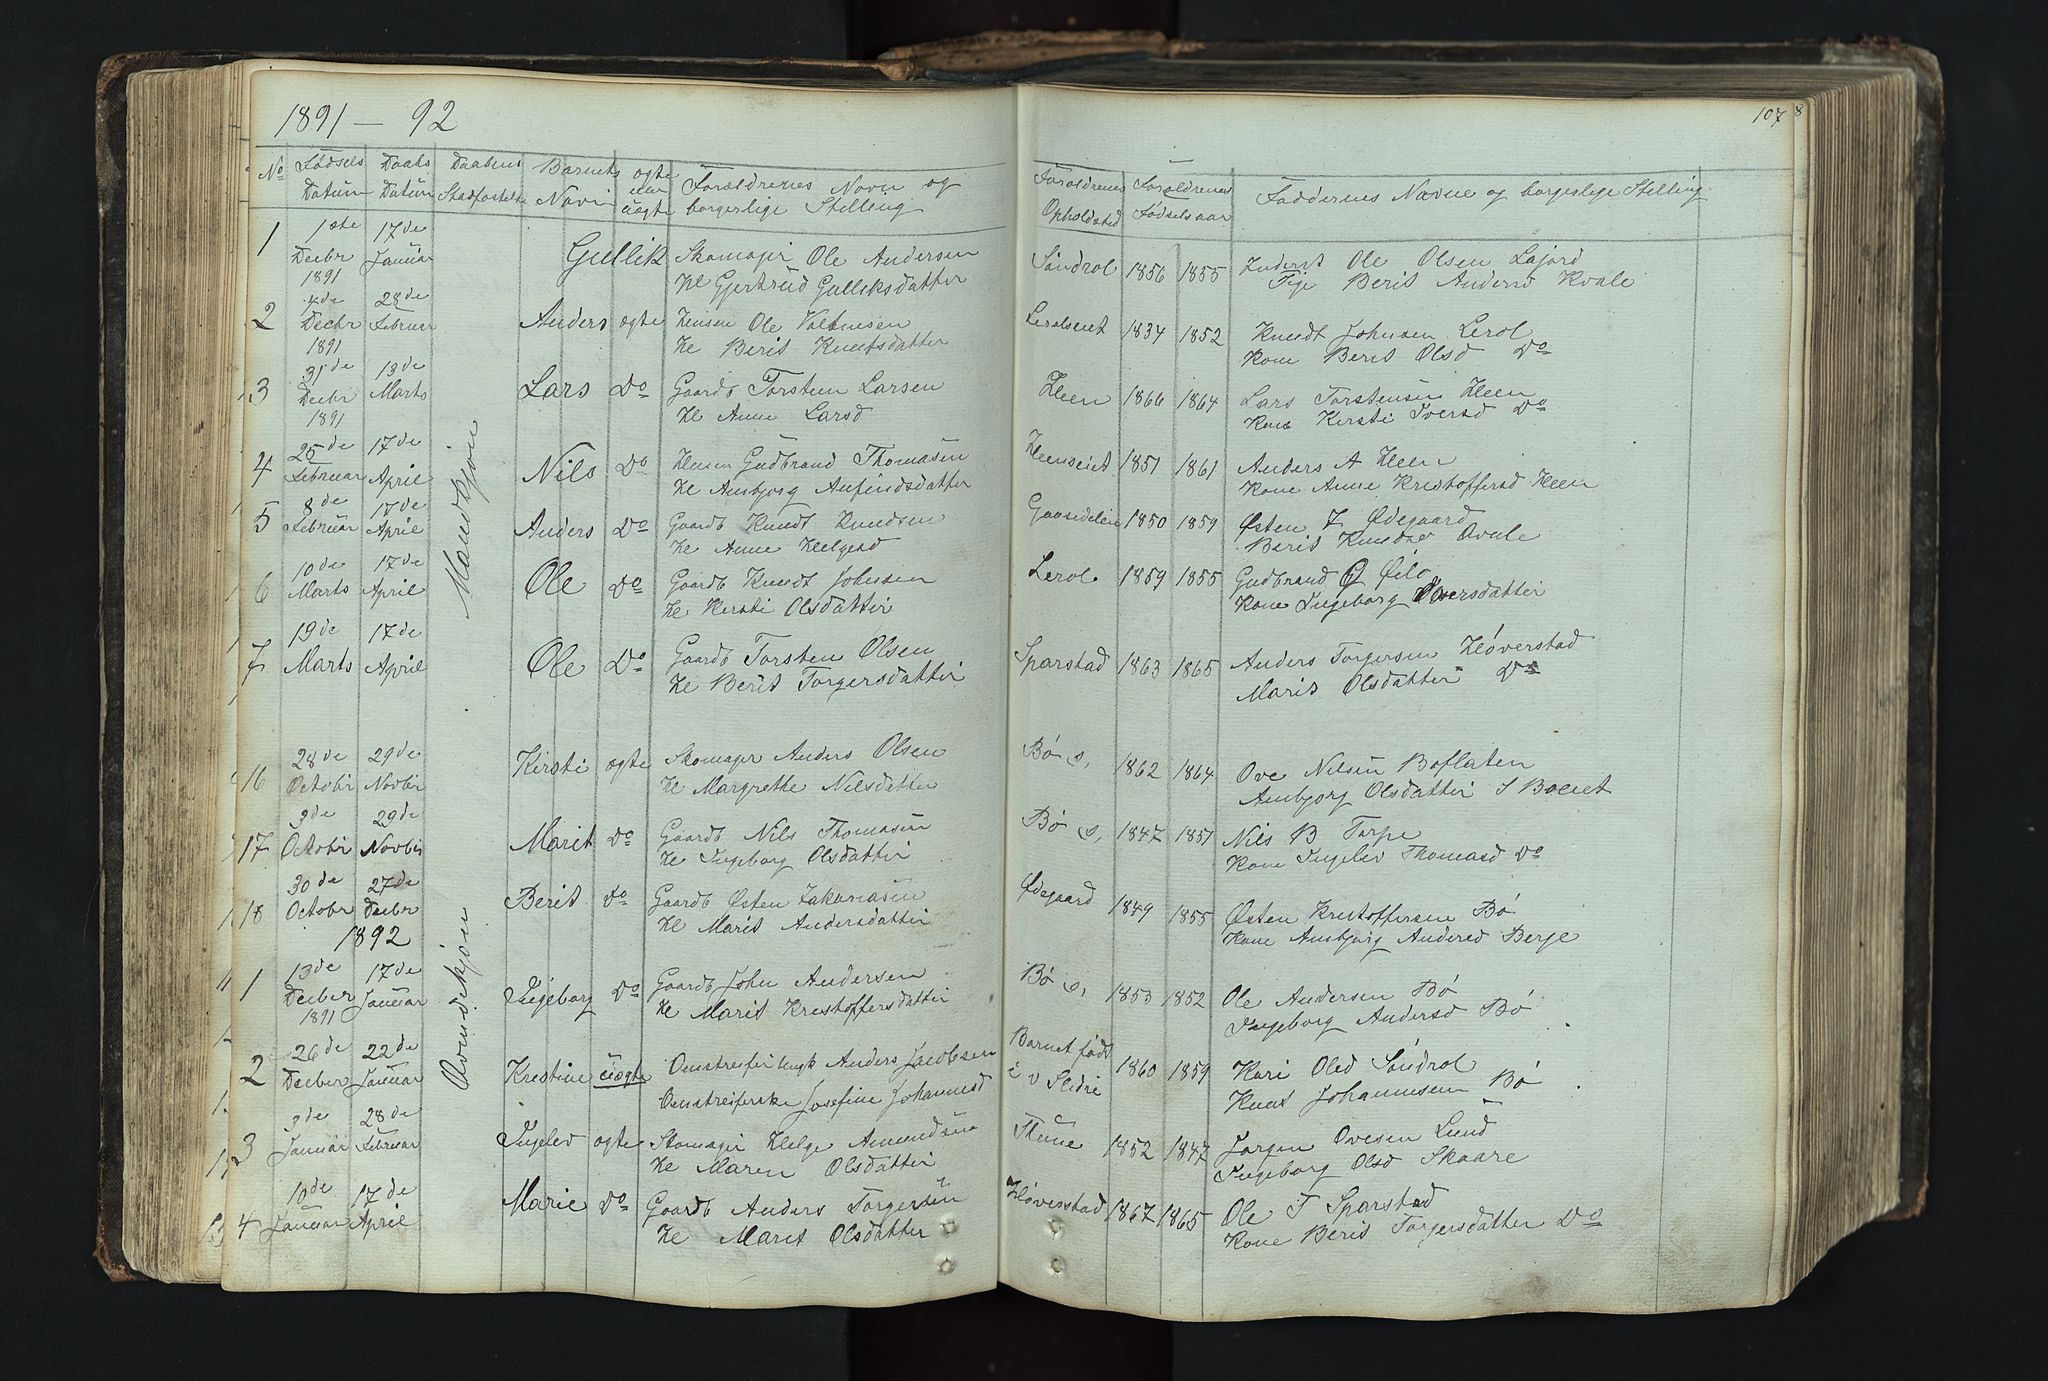 1891 — 92
No Fødsels Daabs Daabens Barnets ægte Forældrenes Navn og
Datum Datum Stadfæstelse Navn eller borgerlige Stilling
uægte
1 1ste 17de Gullik Skomager Ole Andersen
Decbr Januar He Gjertrud Gulliksdatter
1891
2 4de 28de Anders ægte Huusm Ole
Decbr Februar He Berit Knutsdatter
1891
3 31de 13de Lars Do Gaardb Torsten Larsen
Decbr Marts He Anne Larsd
1891
Mandkjøn
4 25de 17de Nils Do Husm Gudbrand Thomasen
Februar April He Ambjørg Anfindsdatter
5 8de 17de Anders Do Gaardb Knudt Knudsen
Februar April He Anne Helgesd
6 10de 17de Ole Do Gaardb Knudt Johnsen
Marts April He Kirsti Olsdatter
7 19de 17de Ole Do Gaardb Torsten Olsen
Marts April He Berit Torgersdatter
16 28de 29de Kirsti ægte Skomager Anders Olsen
Octobr Novbr He Margrethe Nilsdatter
17 3de 29de Marit Do Gaardb Nils Thomasen
Octobr Novbr He Ingeborg Olsdatter
18 30de 27de Berit Do Gaardb Østen Zakariasen
Octobr Decbr He Marit Andersdatter
1892
Qvindekjøn
1 13de 17de Ingeborg Do Gaardb John Andersen
Decbr Januar He Marit Kristoffersdatter
1891
2 26de 22de Kristine uægte Omstreifer Anders Jacobsen
Decbr Januar Omstreiferske Josefine Johannesd
3 3de 28de Ingelev ægte Skomager Helge Amundsen
Januar Februar He Maren Olsdatter
4 10de 17de Marie Do Gaardb Anders Torgersen
Januar April He Marit Olsdatter
107 8
Forældrenes Forældrenes Faddernes Navne og borgerlige Stilling
Opholdsted Fødselsaar
Søndrol 1856 1855 Inderst Ole Olsen Lajord
Pige Berit Andersd Kvale
Lerolseiet 1834 1852 Knudt Johnsen Lerol
Kone Berit Olsd Do
Heen 1866 1864 Lars Torstensen Heen
Kone Kirsti Iversd Do
Heenseiet 1851 1861 Anders A Heen
Kone Anne Kristoffersd Heen
1850 1859 Østen Z Ødegaard
Berit Knudsd
Lerol 1859 1855 Gudbrand O
Kone Ingeborg Oversdatter
Sparstad 1863 1865 Anders Torgersen Høverstad
Marit Olsdatter Do
Bø s, 1862 1864 Ove Nilsen Boflaten
Ambjørg Olsdatter S Boeiet
Bø s, 1847 1851 Nils B Torpe
Kone Ingelev Thomasd Do
Ødegaard 1849 1855 Østen Kristoffersen Bø
Kone Ambjørg Andersd Berge
Bø s, 1853 1852 Ole Andersen Bø
Ingeborg Andersd Bø
Barnet født 1860 1859 Kari Olsd Søndrol
i v Slidre Knut Johannesen Bø
Thune 1852 1847 Jørgen Ovesen Lund
Ingeborg Olsd Skaare
Høverstad 1867 1865 Ole T Sparstad
Kone Berit Torgersdatter Do